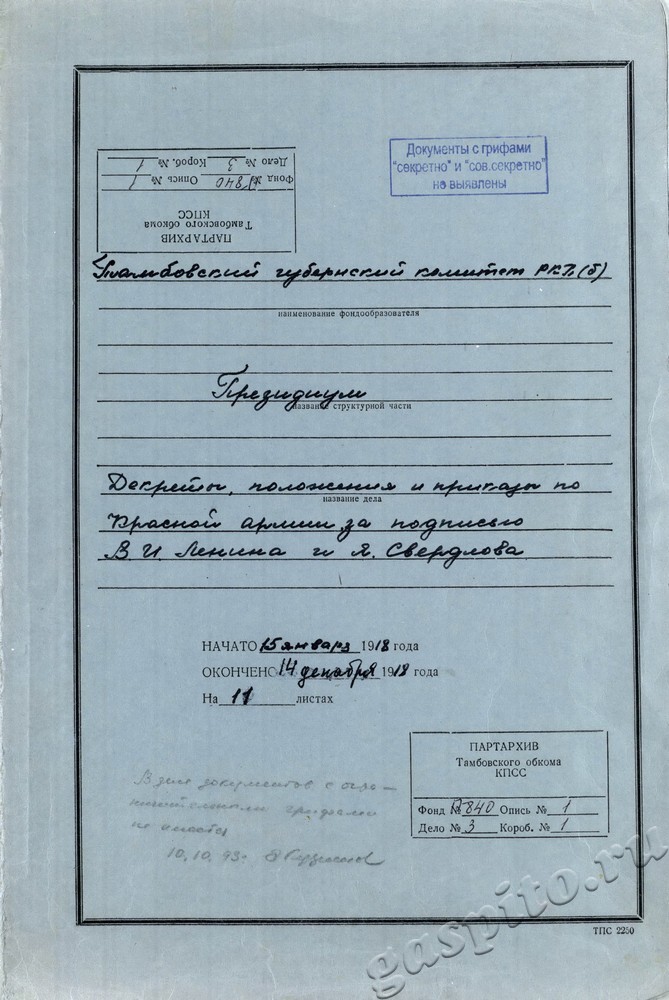 Документы с грифами
"секретно" и "сов.секретно"
не выявлены
ПАРТАРХИВ
Тамбовского обкома
КПСС
Фонд № П840 Опись № 1
Дело № 3 Короб. № 1
Тамбовский губернский комитет РКП(б)
наименование фондообразователя
Президиум
название структурной части
Декреты, положения и приказы по
название дела
Красной армии за подписью
В.И. Ленина и Я. Свердлова
НАЧАТО 15 января 1918 года
ОКОНЧЕНО 14 декабря 1918 года
На 11 листах
ПАРТАРХИВ
Тамбовского обкома
КПСС
Фонд № П840 Опись № 1
Дело № 3 Короб. № 1
В деле документов с огра-
ничительными грифами
не имеется
10.10.93г.
ТПС 2250
gaspito.ru